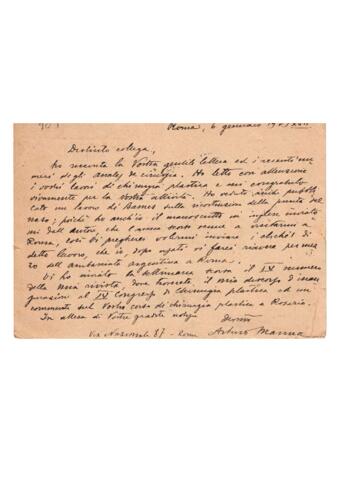 Roma, 6 gennaio 19
Distinto collega,
ho ricevuto la Vostra gentile lettera ed i recenti nu
meri degli Anales de cirugia. Ho letto con attenzione
i vostri lavori di chirurgia plastica e mi congratulo
vivamente per la Vostra attività. Ho veduto pubbli
cato un lavoro di Barnes sulla ricostruzione della punta del
naso; poichè ho anch'io il manoscritto in inglese inviato
mi dall'autore, che l'anno scorso venne a visitarmi a
Roma, così Vi pregherei volermi inviare i clichés di
detto lavoro, che io dopo usati vi farei riavere per mez
zo dell'ambasciata argentina a Roma.
Vi ho inviato la settimana scorsa il IV numero
della mia rivista, dove troverete il mio discorso d'inau
gurazione al Congresso di chirurgia plastica ed un
commento sul Vostro corso di chirurgia plastica a Rosario.
In attesa di Vostre gradite notizie
Via Nazionale 87 - Roma Arturo Manna